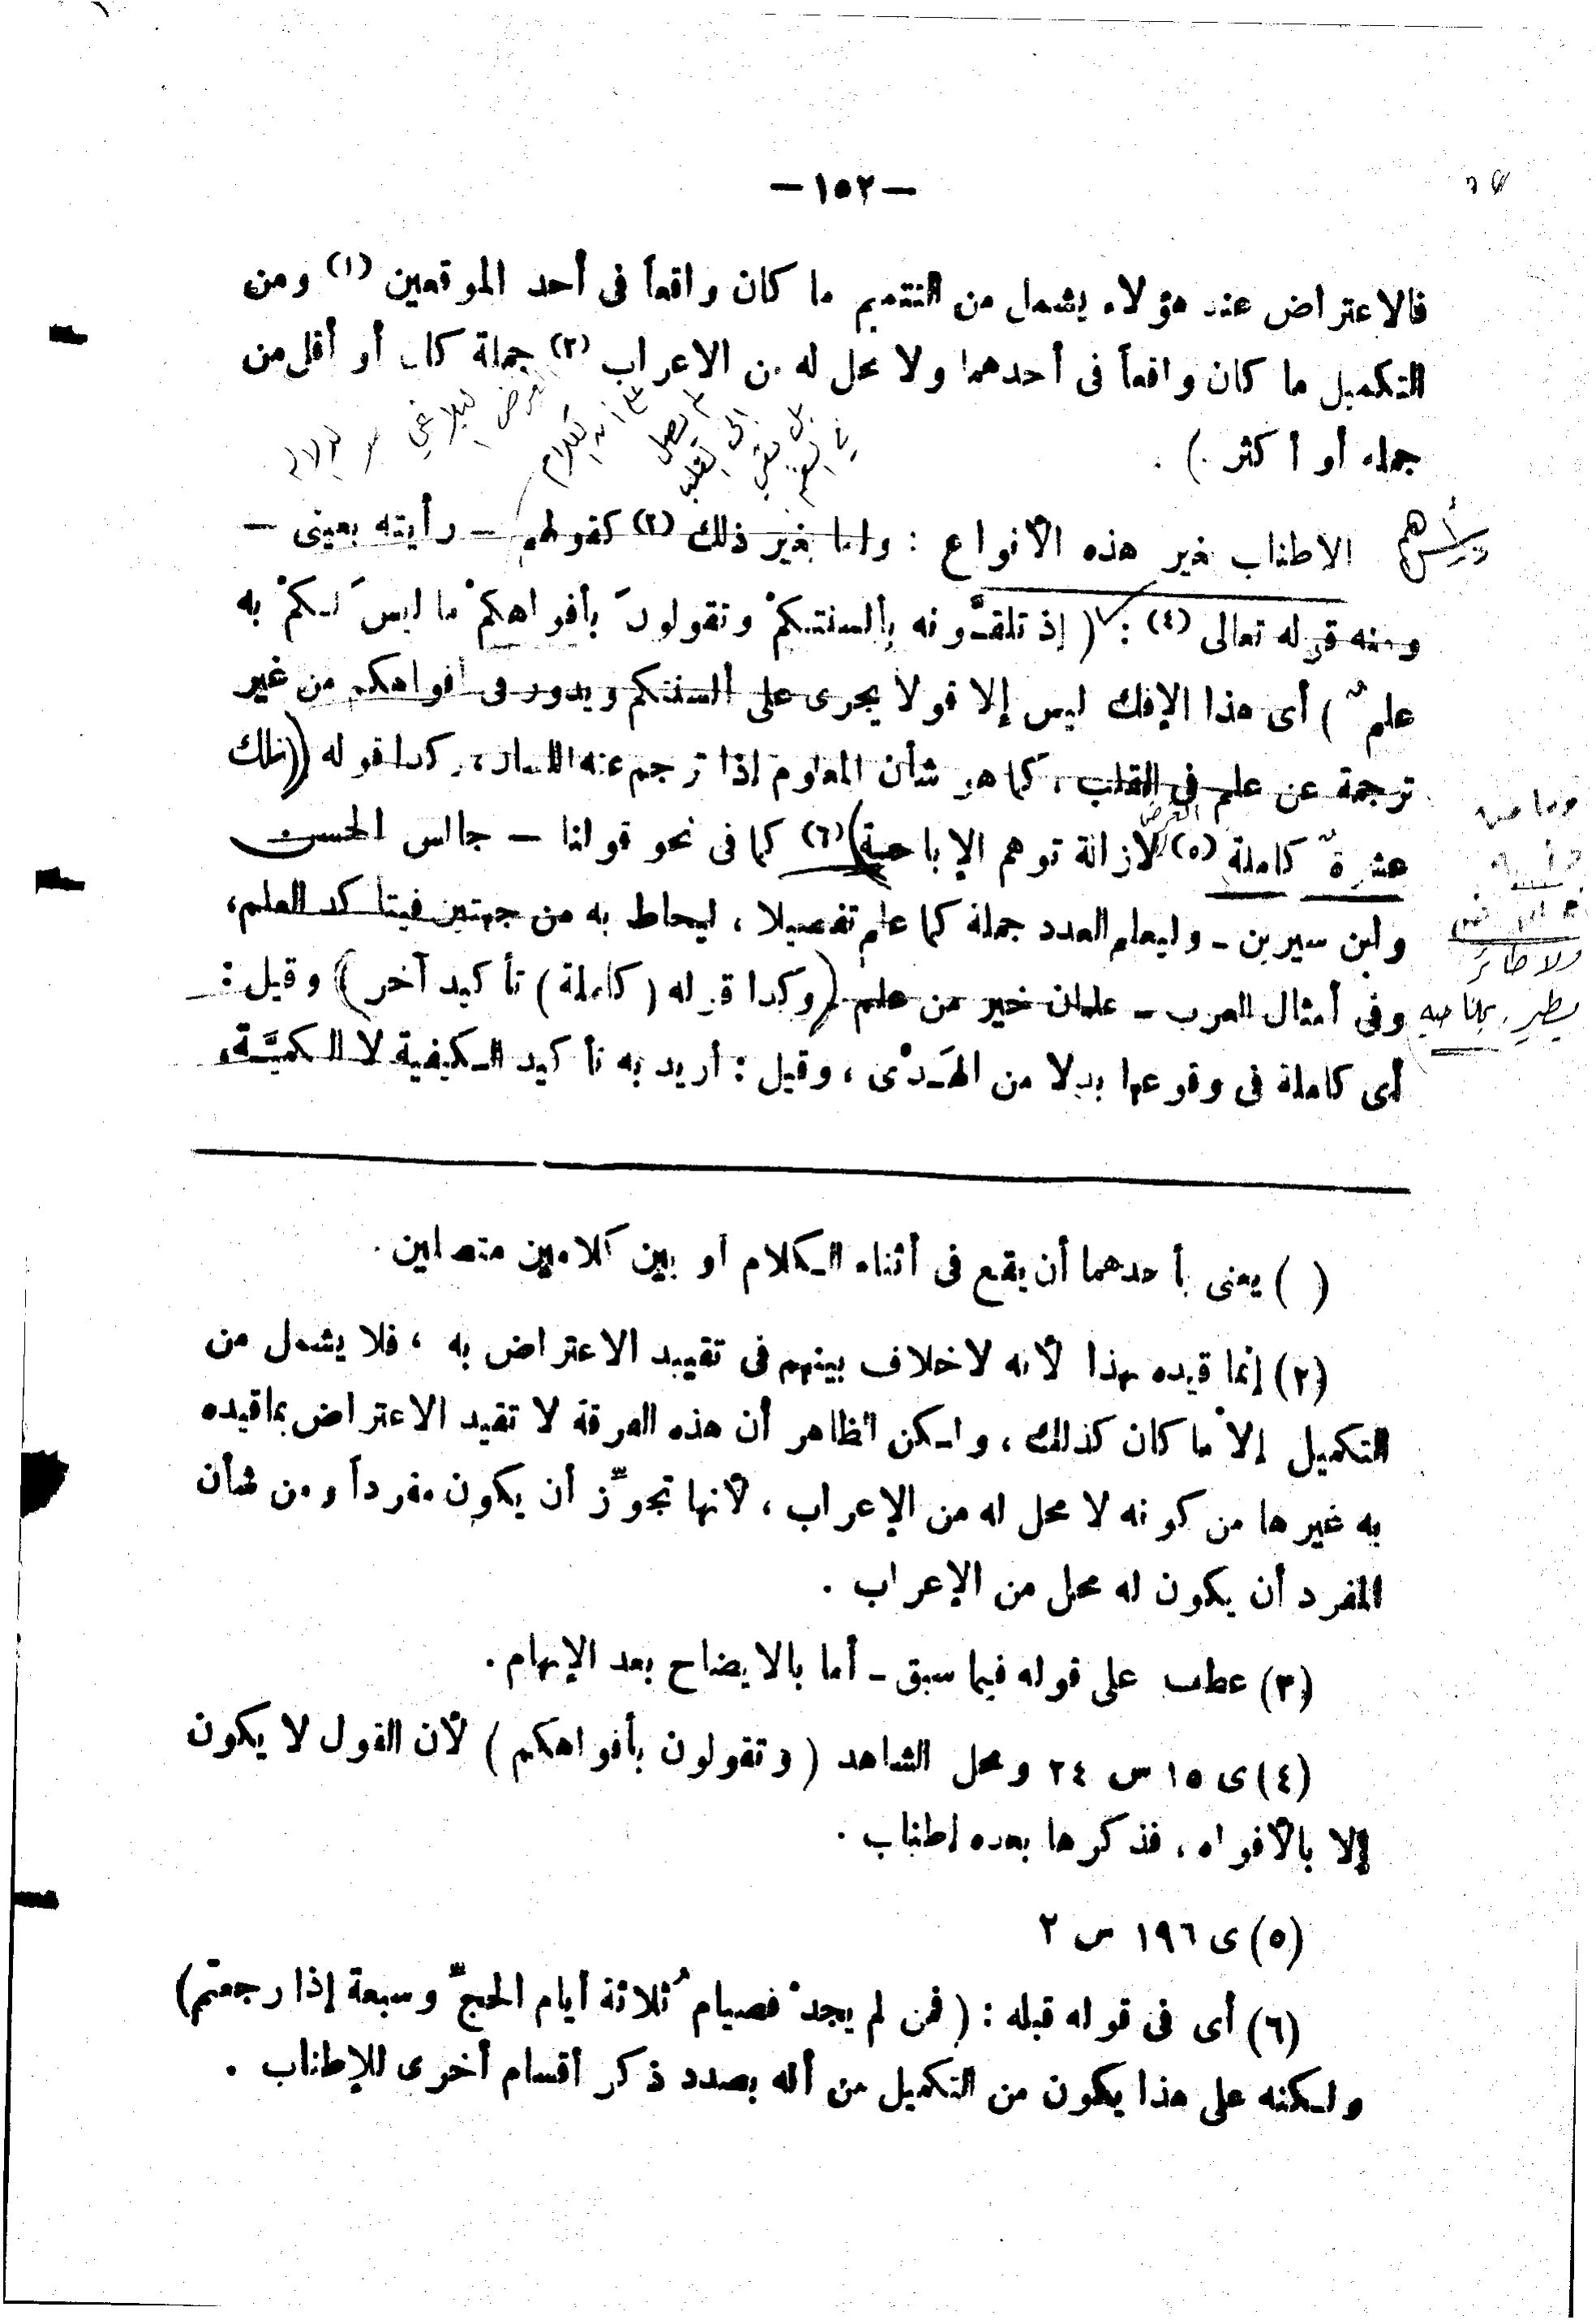 —١٥٢—
فالاعتراض عند هؤلاء يشمل من التتميم ما كان واقعاً فى أحد الموقعين (١) ومن
التكميل ما كان واقعاً فى أحدهما ولا محل له من الاعراب (٢) جملة كان أو أقل من
جملة أو أكثر .) .
الاطناب بغير هذه الأنواع : وإما بغير ذلك (٣) كقولهم — رأيته بعينى —
ومنه قوله تعالى (٤) : ( إذ تلقَّونه بألسنتكمْ وتقولونَ بأفواهكمْ ما ليسَ لكمْ به
علمٌ ) أى هذا الإفك ليس إلا قولا يجرى على ألسنتكم ويدور فى أفواهكم من غير
ترجمة عن علم فى القلب ، كما هو شأن المعلوم إذا ترجم عنه اللسان ، وكذا قوله ( تلك
عشرةٌ كاملة (٥) لازالة توهم الإباحة (٦) كما فى نحو قولنا — جالس الحسن
وابن سيرين — وليعلم العدد جملة كما علم تفصيلا ، ليحاط به من جهتين فيتأكد العلم،
وفى أمثال العرب — علمان خير من علم ( وكذا قوله ( كاملة ) تأكيد آخر ) وقيل :
أى كاملة فى وقوعها بدلا من الهَدْى ، وقيل : أريد به تأكيد الكيفية لا الكميَّة،
( ) يعنى بأحدهما أن يقع فى أثناء الكلام أو بين كلامين متصلين .
(٢) إنما قيده بهذا لأنه لا خلاف بينهم فى تقييد الاعتراض به ، فلا يشمل من
التكميل إلا ما كان كذلك ، ولكن الظاهر أن هذه الفرقة لا تقيد الاعتراض بما قيده
به غيرها من كونه لا محل له من الإعراب ، لأنها تجوّز أن يكون مفرداً ومن شأن
المفرد أن يكون له محل من الإعراب .
(٣) عطف على قوله فيما سبق — أما بالايضاح بعد الإبهام .
(٤) ى ١٥ س ٢٤ ومحل الشاهد ( وتقولون بأفواهكم ) لأن القول لا يكون
إلا بالأفواه ، فذكرها بعده إطناب .
(٥) ى ١٩٦ س ٢
(٦) أى فى قوله قبله : ( فمن لم يجدْ فصيامُ ثلاثة أيام الحجّ وسبعة إذا رجعتم )
ولكنه على هذا يكون من التكميل من أنه بصدد ذكر أقسام أخرى للإطناب .
ولا طائر
يطير بجناحيه